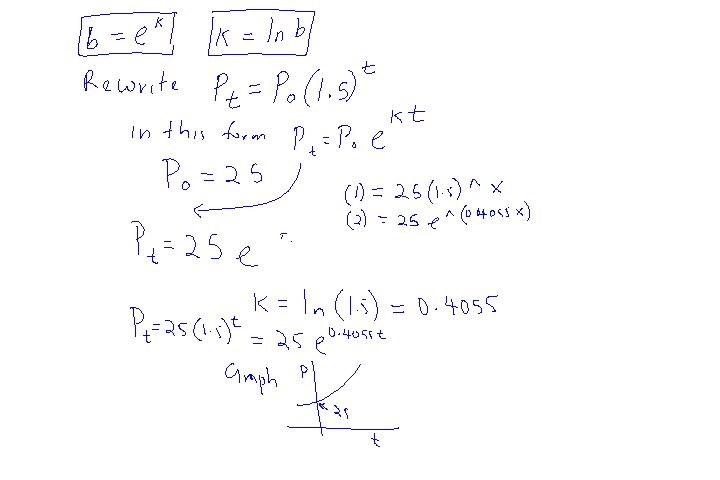 b = e^k   k = ln b
Rewrite P_t = P_0 (1.5)^t
in this form P_t = P_0 e^kt
P_0 = 25
(1) = 25 (1.5) ^ x
(2) = 25 e ^ (0.4055 x)
P_t = 25 e
k = ln (1.5) = 0.4055
P_t = 25 (1.5)^t = 25 e^0.4055t
Graph P
25
t